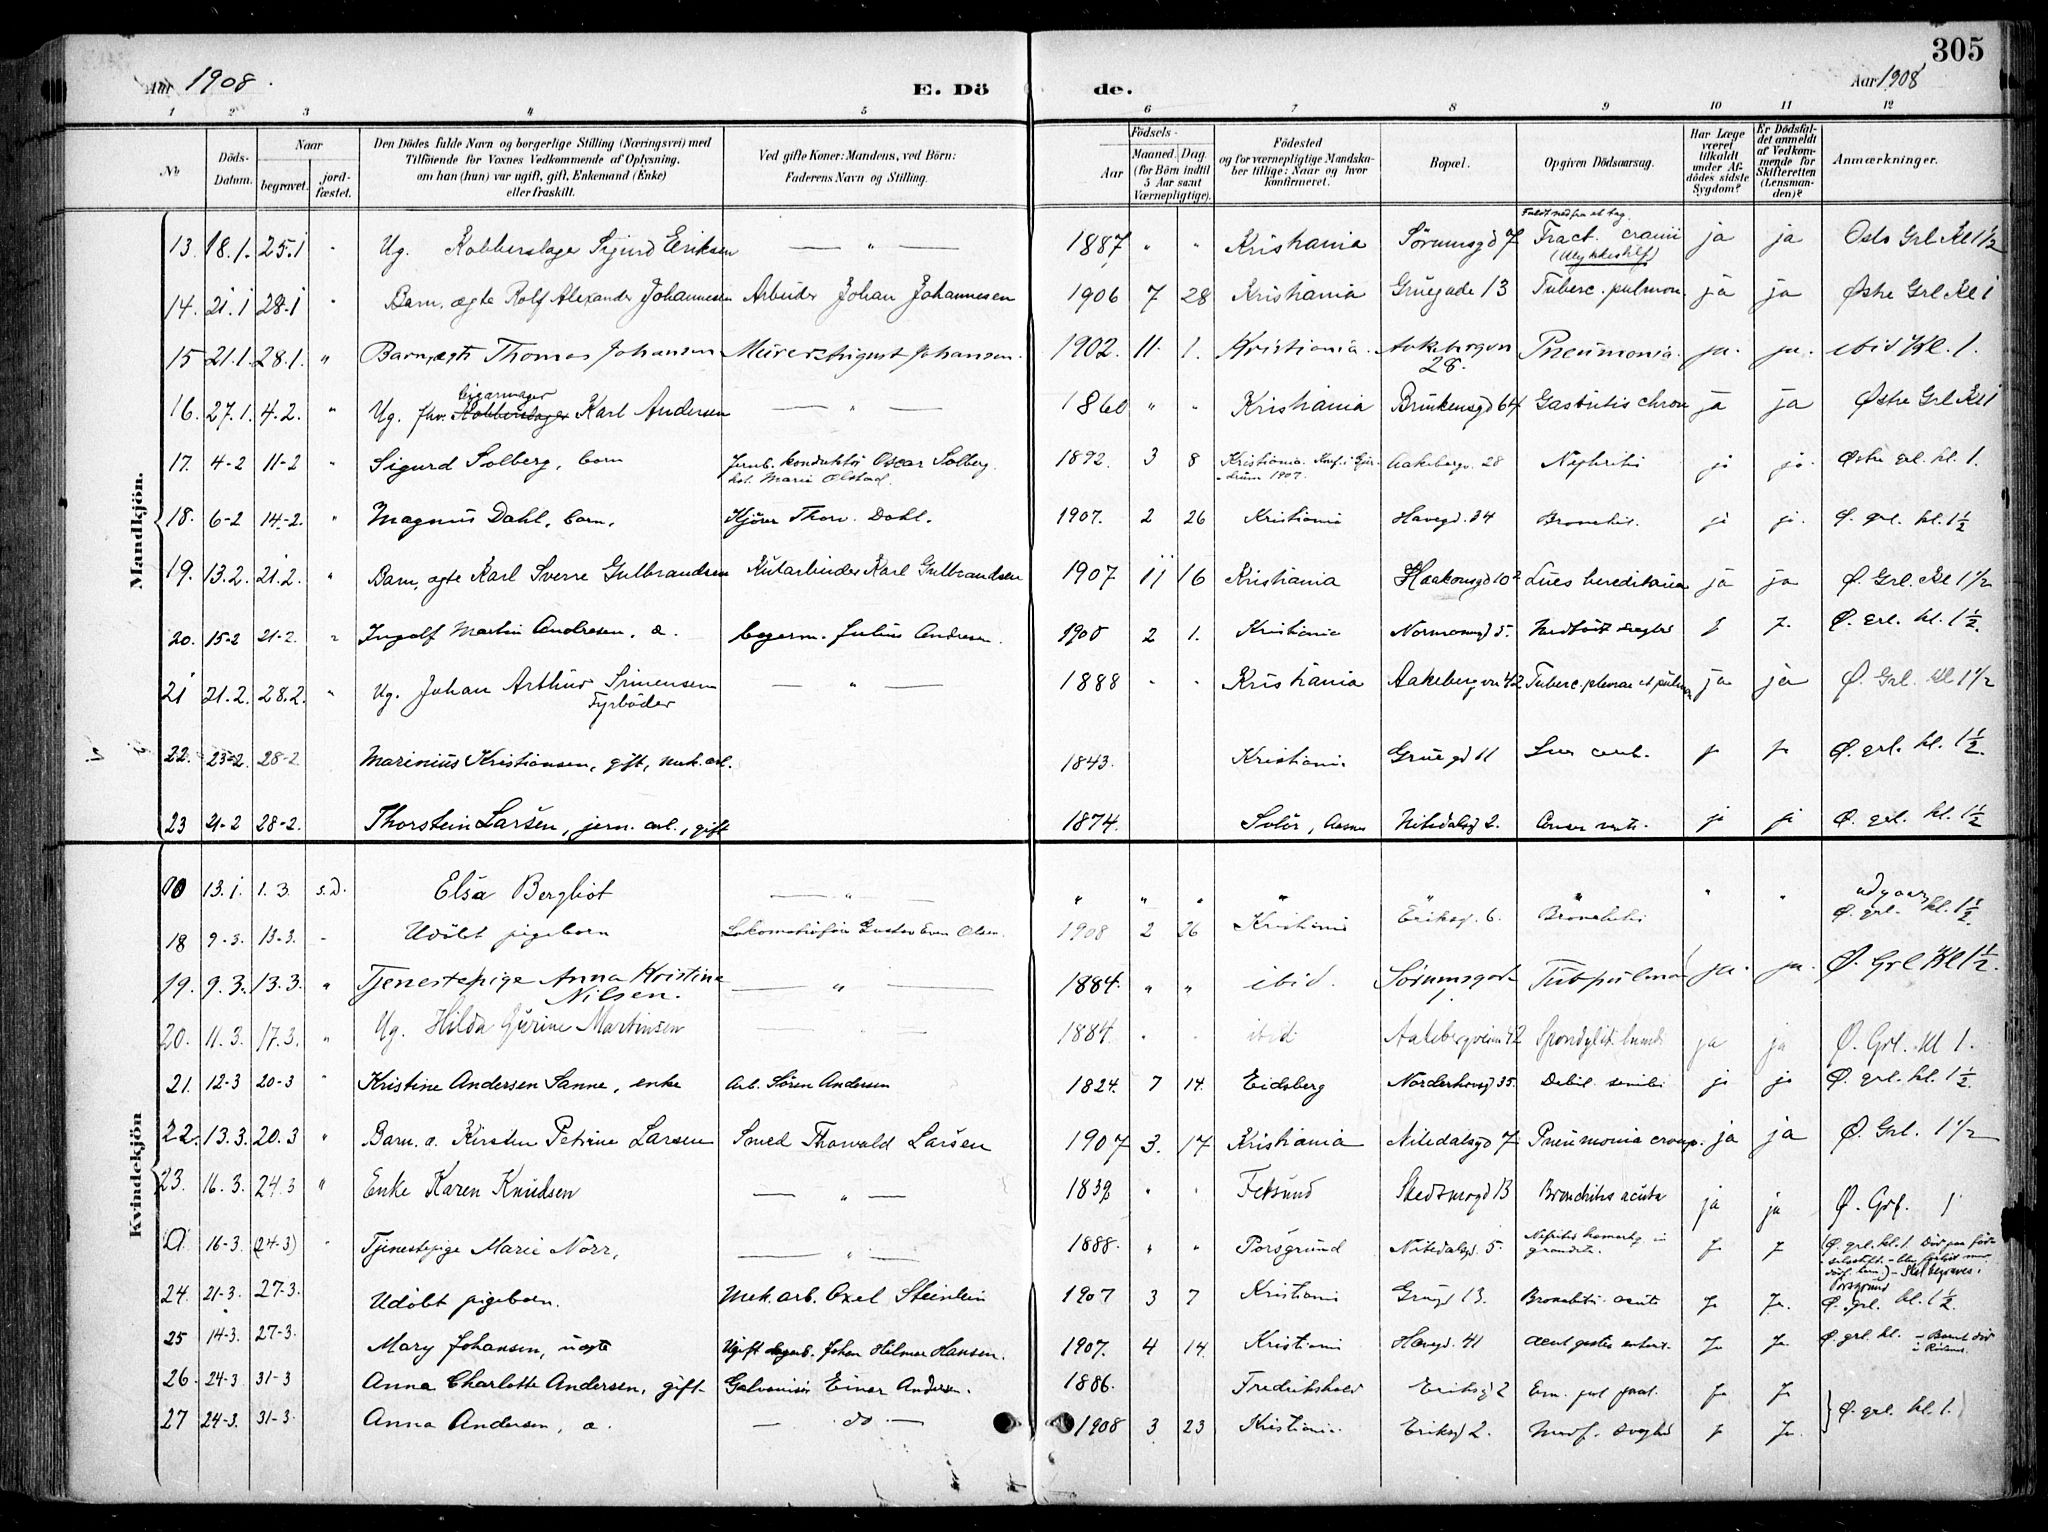 305
Aar 1908.
E. Dö de.
Aar 1908
1 2 3 4 5 6 7 8 9 10 11 12
No.
Döds-Datum.
Naar
begravet.
jord-fæstet.
Den Dödes fulde Navn og borgerlige Stilling (Næringsvei) med
Tilföiende for Voxnes Vedkommende af Oplysning,
om han (hun) var ugift, gift, Enkemand (Enke)
eller fraskilt.
Ved gifte Koner: Mandens, ved Börn:
Faderens Navn og Stilling.
Födsels-
Aar
Maaned. Dag.
(for Börn indtil
5 Aar samt
Værnepligtige).
Födested
og for værnepligtige Mandska-
ber tillige: Naar og hvor
konfirmeret.
Bopæl.
Opgiven Dödsaarsag.
Har Læge
været
tilkaldt
under Af-
dödes sidste
Sygdom?
Er Dödsfal-
det anmeldt
af Vedkom-
mende for
Skifteretten
(Lensman-
den)?
Anmærkninger.
Mandkjön.
Faldt ned fra et tag.
13. 18.1. 25.1 " Ug. Kobberslager Sigurd Eriksen — " — 1887 " " Kristiania Sörumsgd 7 Fract. cranii ja ja Oslo Grl Kl 1½
(Ulykkestilf)
14. 21.1 28.1 " Barn, ægte Rolf Alexander Johannesen Arbeider Johan Johannesen 1906 7 28 Kristiania Grüegade 13 Tuberc. pulmon. ja ja Østre Grl Kl 1
15 21.1. 28.1. " Barn, ægte Thomas Johansen Murer August Johansen. 1902. 11. 1. Kristiania. Aakebergvn 28. Pneumonia. ja. ja. ibid Kl. 1.
Cigarmager
16. 27.1. 4.2. " Ug. fhv. Kobberslager Karl Andersen — " — 1860 " " Kristiania Brinkensgd 64 Gastritis chron ja ja Østre Grl Kl 1
17. 4-2 11-2 " Sigurd Solberg, barn Jernb. konduktör Oscar Solberg 1892. 3 8 Kristiania. Konf. i Gjer- Aakebergv. 28 Nephritis ja ja. Østre grl. kl. 1.
hst. Marie Olstad. -drum 1907.
18. 6-2 14-2. " Magnus Dahl, barn, Kjörer Thorv. Dahl. 1907. 2 26 Kristiania Havegd. 34 Bronchit. ja ja. Ø. grl. kl. 1½
19. 13.2. 21.2. " Barn, ægte Karl Sverre Gulbrandsen Kularbeider Karl Gulbrandsen 1907 11 16 Kristiania Haakonsgd 10² Lues hereditaria ja ja Ø. Grl. Kl 1½
20. 15-2 21-2. " Ingolf Martin Andresen, æ. Julius Andresen. 1908 2 1. Kristiania Normannsgd 5. Medfödt svaghed J J. Ø. grl. kl. 1½.
21 21.2. 28.2. " Ug. Johan Arthur Simensen — " — 1888 " " Kristiania Aakebergvn 42 Tuberc. plenae et pulmon ja ja Ø. Grl. kl 1½
Fyrböder
22. 23-2. 28-2. Marinius Kristiansen, gift, mek. arb. 1843. Kristiania Grüegd 11 Ø. grl. kl. 1½.
23 21-2 28-2. Thorstein Larsen, jern. arb., gift 1874. Solör, Nitedalsgd 2. ja ja Ø. grl. kl. 1½
Kvindekjön
10 13.1. 1.3. s.D. Elsa Bergliot — " — " " " " " " " " udgaar
18 9-3. 13-3. - Udöbt pigebarn Lokomotivför. Gustav Even Olsen. 1908 2 26 Kristiania Eriksgd. 6. Bronchitis Ø. grl. kl. 1½.
19. 9.3. 13.3. " Tjenestepige Anna Kristine Nilsen. — " — 1884. " " ibid. Sörumsgade 1. Tub pulmon ja. ja. Ø. Grl Kl 1½.
20. 11.3. 17.3. " Ug. Hilda Gurine Martinsen — " — 1884. " " ibid Aakebergveien 42 Spondylit. lumb. ja ja Ø. Grl. kl 1.
21. 12-3 20-3 " Kristine Andersen Sanne, enke Arb. Sören Andersen 1824. 7 14. Eidsberg Norderhovsgd 35. Debil. senilis ja ja Ø. grl. kl. 1½.
22. 13.3. 20.3 " Barn. æ. Kirsten Petrine Larsen Smed Thorvald Larsen 1907 3. 17 Kristiania Nitedalsgd 7 Pneumonia croup. ja ja Ø. Grl. 1½
23. 16.3. 24.3 " Enke Karen Knudsen — " — 1839 " " Fetsund Skedsmogd 13 Bronchitis acuta ja ja Ø. Grl. 1
a. 16-3. (24-3) " Tjenestepige Marie Nörr, — " — 1888. " " Porsgrund Nitedalsgd. 5. J. J (Ø. grl. kl. 1. Död paa föd-
Skal begraves i Porsgrund
24. 21-3. 27-3. Udöbt pigebarn. Mek. arb. Axel Steinlein 1907 3 7 Kristiania Grügd 13. Bronchitis acuta J. J. Ø. grl. kl. 1½.
25 14-3. 27-3. Mary Johansen, uægte Ugift Johan Hilmar Hansen. 1907. 4 14. Kristiania Havegd. 41 J. J. Ø. grl. kl. - Barnet död
26. 24-3 31-3 Anna Charlotte Andersen, gift- Galvanisör Einar Andersen. 1886. Fredrikshald Eriksgd 2 J. J.
27 24-3. 31-3. Anna Andersen, æ. — do — 1908 3 23 Kristiania. Eriksgd 2. Medf. svaghed J J. } Ø. grl. kl. 1.